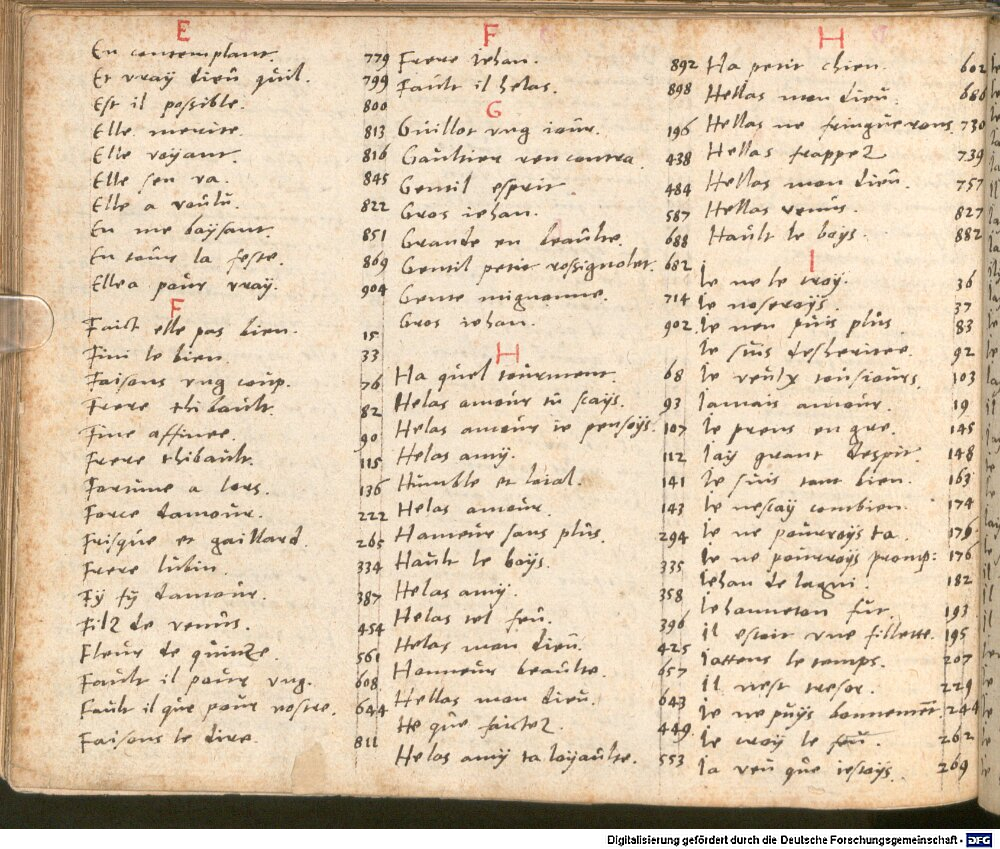 E
En contemplant. 779
Et vray dieu quil. 799
Est il possible. 800
Elle merite. 813
Elle voyant. 816
Elle sen va. 845
Elle a voulu. 822
En me baysant. 851
En tour la feste. 869
Ellea pour vray. 904
F
Faict elle pas bien. 15
Fini le bien 33
Faisons vng coup. 76
Frere thibault. 82
Fine affinee. 90
Frere thibault. 115
Fortune a lors. 136
Force damour. 222
Frisque et gaillard. 265
Frere lubin. 334
Fy fy damour. 387
Filz de venus. 454
Fleur de quinze. 561
Fault il pour vng. 608
Fault il que pour vostre. 644
Faisons le dire 811
F
Frere iehan. 892
Fault il helas. 898
G
Guillot vng iour. 196
Gaultier rencontra 438
Gentil esprit. 484
Gros iehan. 587
Grande en beaulte. 688
Gentil petit rossignolet. 682
Gente mignonne. 714
Gros iehan. 902
H
Ha quel tourment. 68
Helas amour tu scays. 93
Helas amour ie pensoys. 107
Helas amy. 112
Humble et loial. 141
Helas amour. 143
Hameur sans plus. 294
Hault le boys. 335
Helas amy. 358
Helas tel feu. 396
Helas mon dieu. 425
Honneur beaulte. 657
Hellas mon dieu. 643
He que faictez. 449
Helas amy ta loyaulte. 553
H
Ha petit chien. 602
Hellas mon dieu. 686
Hellas ne fringuerons 730
Hellas frappez 739
Hellas mon dieu. 757
Hellas venus. 827
Hault le boys. 882
I
Ie ne le croy. 36
Ie noseroys. 37
Ie nen puis plus 83
Ie suis desheritee. 92
Ie veulx tousiours. 103
Iamais amour. 19
Ie prens en gre. 145
Iay grant despit. 148
Ie suis tant bien. 163
Ie nescay combien. 174
Ie ne pourroys ta. 176
Ie ne pourroys promp: 176
Iehan de lagni. 182
Iehanneton fut. 193
Il estoit vne fillette. 195
Iattens le temps. 207
Il nest tresor. 229
Ie ne puys bonnement. 244
Ie croy le feu. 262
Ia veu que iestoys. 269
Digitalisierung gefördert durch die Deutsche Forschungsgemeinschaft - DFG